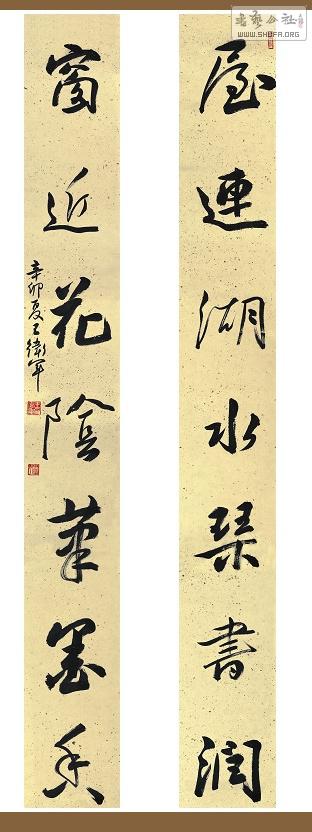 屋連湖水琴書潤
窗近花陰筆墨香
辛卯夏王衛軍
书艺公社
WWW.SHUFA.ORG